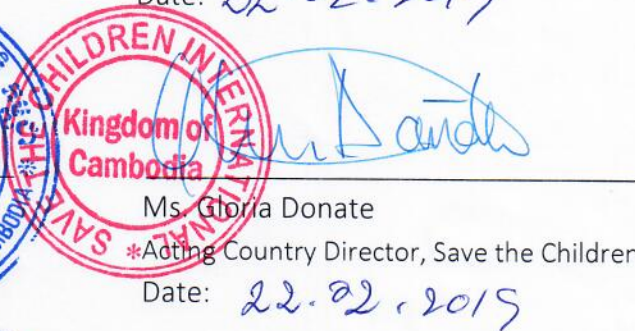 Date: 22.02.2019
SAVE THE CHILDREN INTERNATIONAL *
Kingdom of
Cambodia
Ms. Gloria Donate
Acting Country Director, Save the Children
Date: 22.02.2019